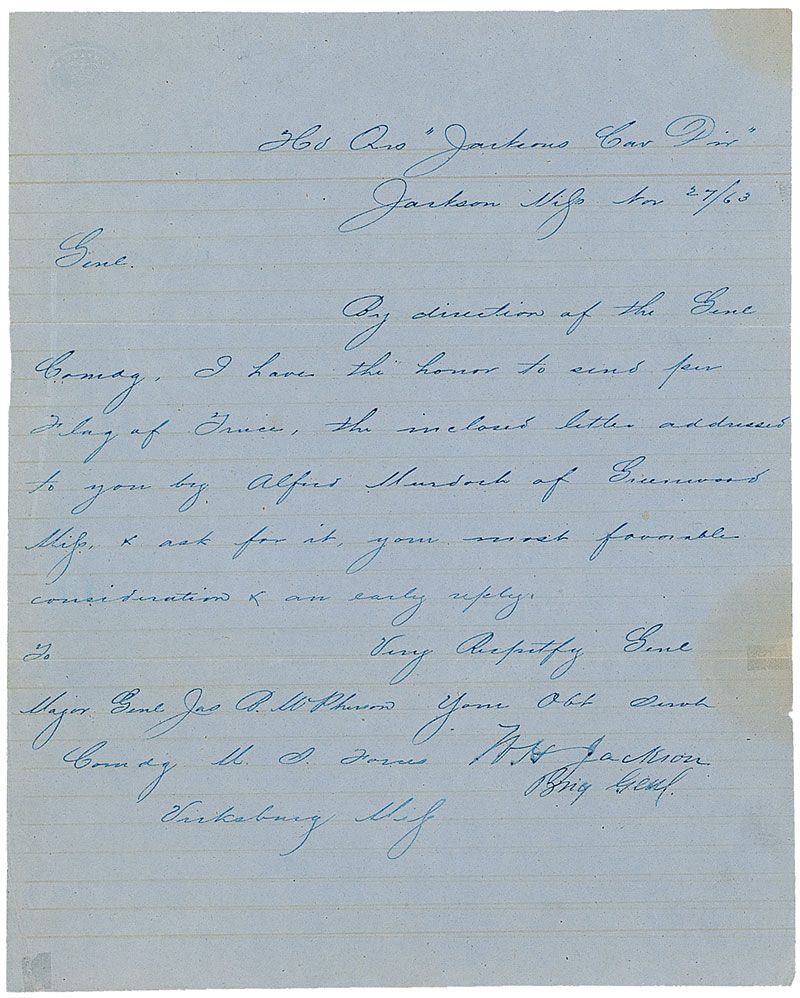 Hd Qrs "Jacksons Cav Div"
Jackson Miss Nov 27/63
Genl.
By direction of the Genl
Comdg, I have the honor to send per
Flag of Truce, the inclosed letter addressed
to you by Alfred Murdock of Greenwood
Miss, & ask for it, your most favorable
consideration & an early reply.
To Very Respctfy Genl
Major Genl Jas B. McPherson Your Obt Servt
Comdg U. S. Forces W H Jackson
Brig Genl.
Vicksburg Miss